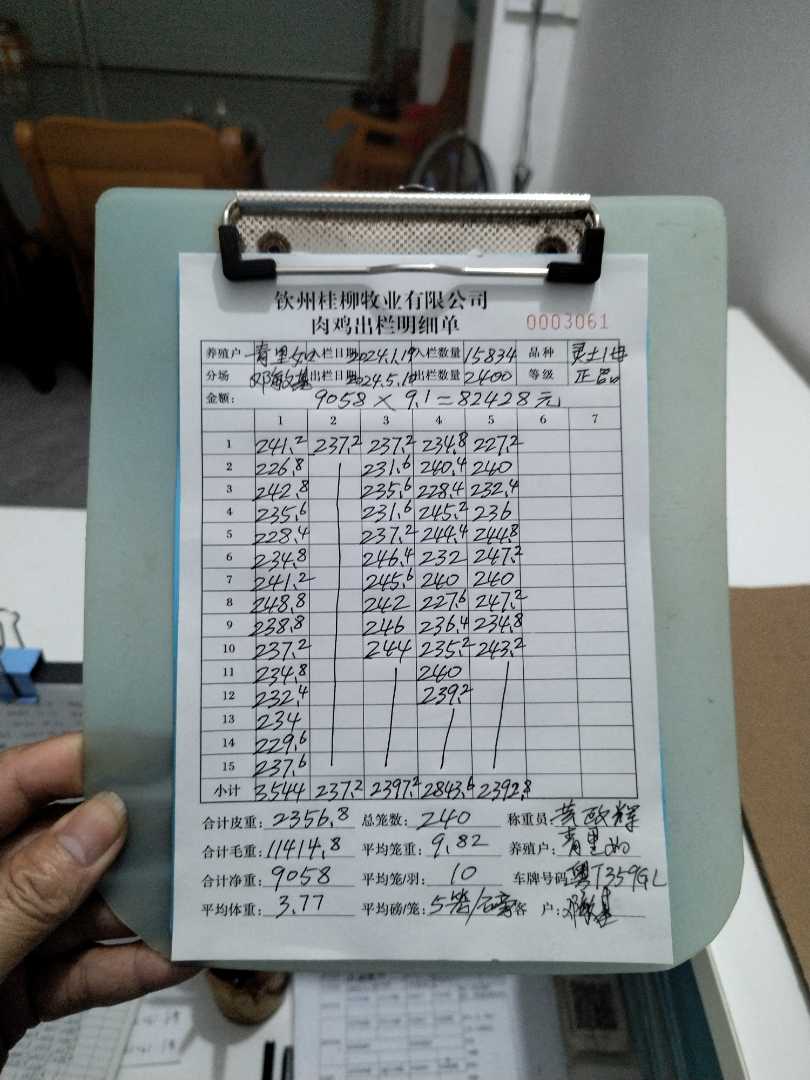 钦州桂柳牧业有限公司
肉鸡出栏明细单 0003061
养殖户 青里如 入栏日期 2024.1.19 入栏数量 15834 品种
分场 出栏日期 2024.5.10 出栏数量 2400 等级 正品
金额: 9058 × 9.1 = 82428元
1 2 3 4 5 6 7
1 241.2 237.2 237.2 234.8 227.2
2 226.8 231.6 240.4 240
3 242.8 235.6 228.4 232.4
4 235.6 231.6 245.2 236
5 228.4 237.2 244.4 244.8
6 234.8 246.4 232 247.2
7 241.2 245.6 240 240
8 248.8 242 227.6 247.2
9 238.8 246 236.4 234.8
10 237.2 244 235.2 243.2
11 234.8 240
12 232.4 239.2
13 234
14 229.6
15 237.6
小计 3544 237.2 2397.2 2843.6 2392.8
合计皮重: 2356.8 总笼数: 240 称重员
合计毛重: 11414.8 平均笼重: 9.82 养殖户: 青里如
合计净重: 9058 平均笼/羽: 10 车牌号码 粤T359GL
平均体重: 3.77 平均磅/笼: 5笼/磅 客 户: